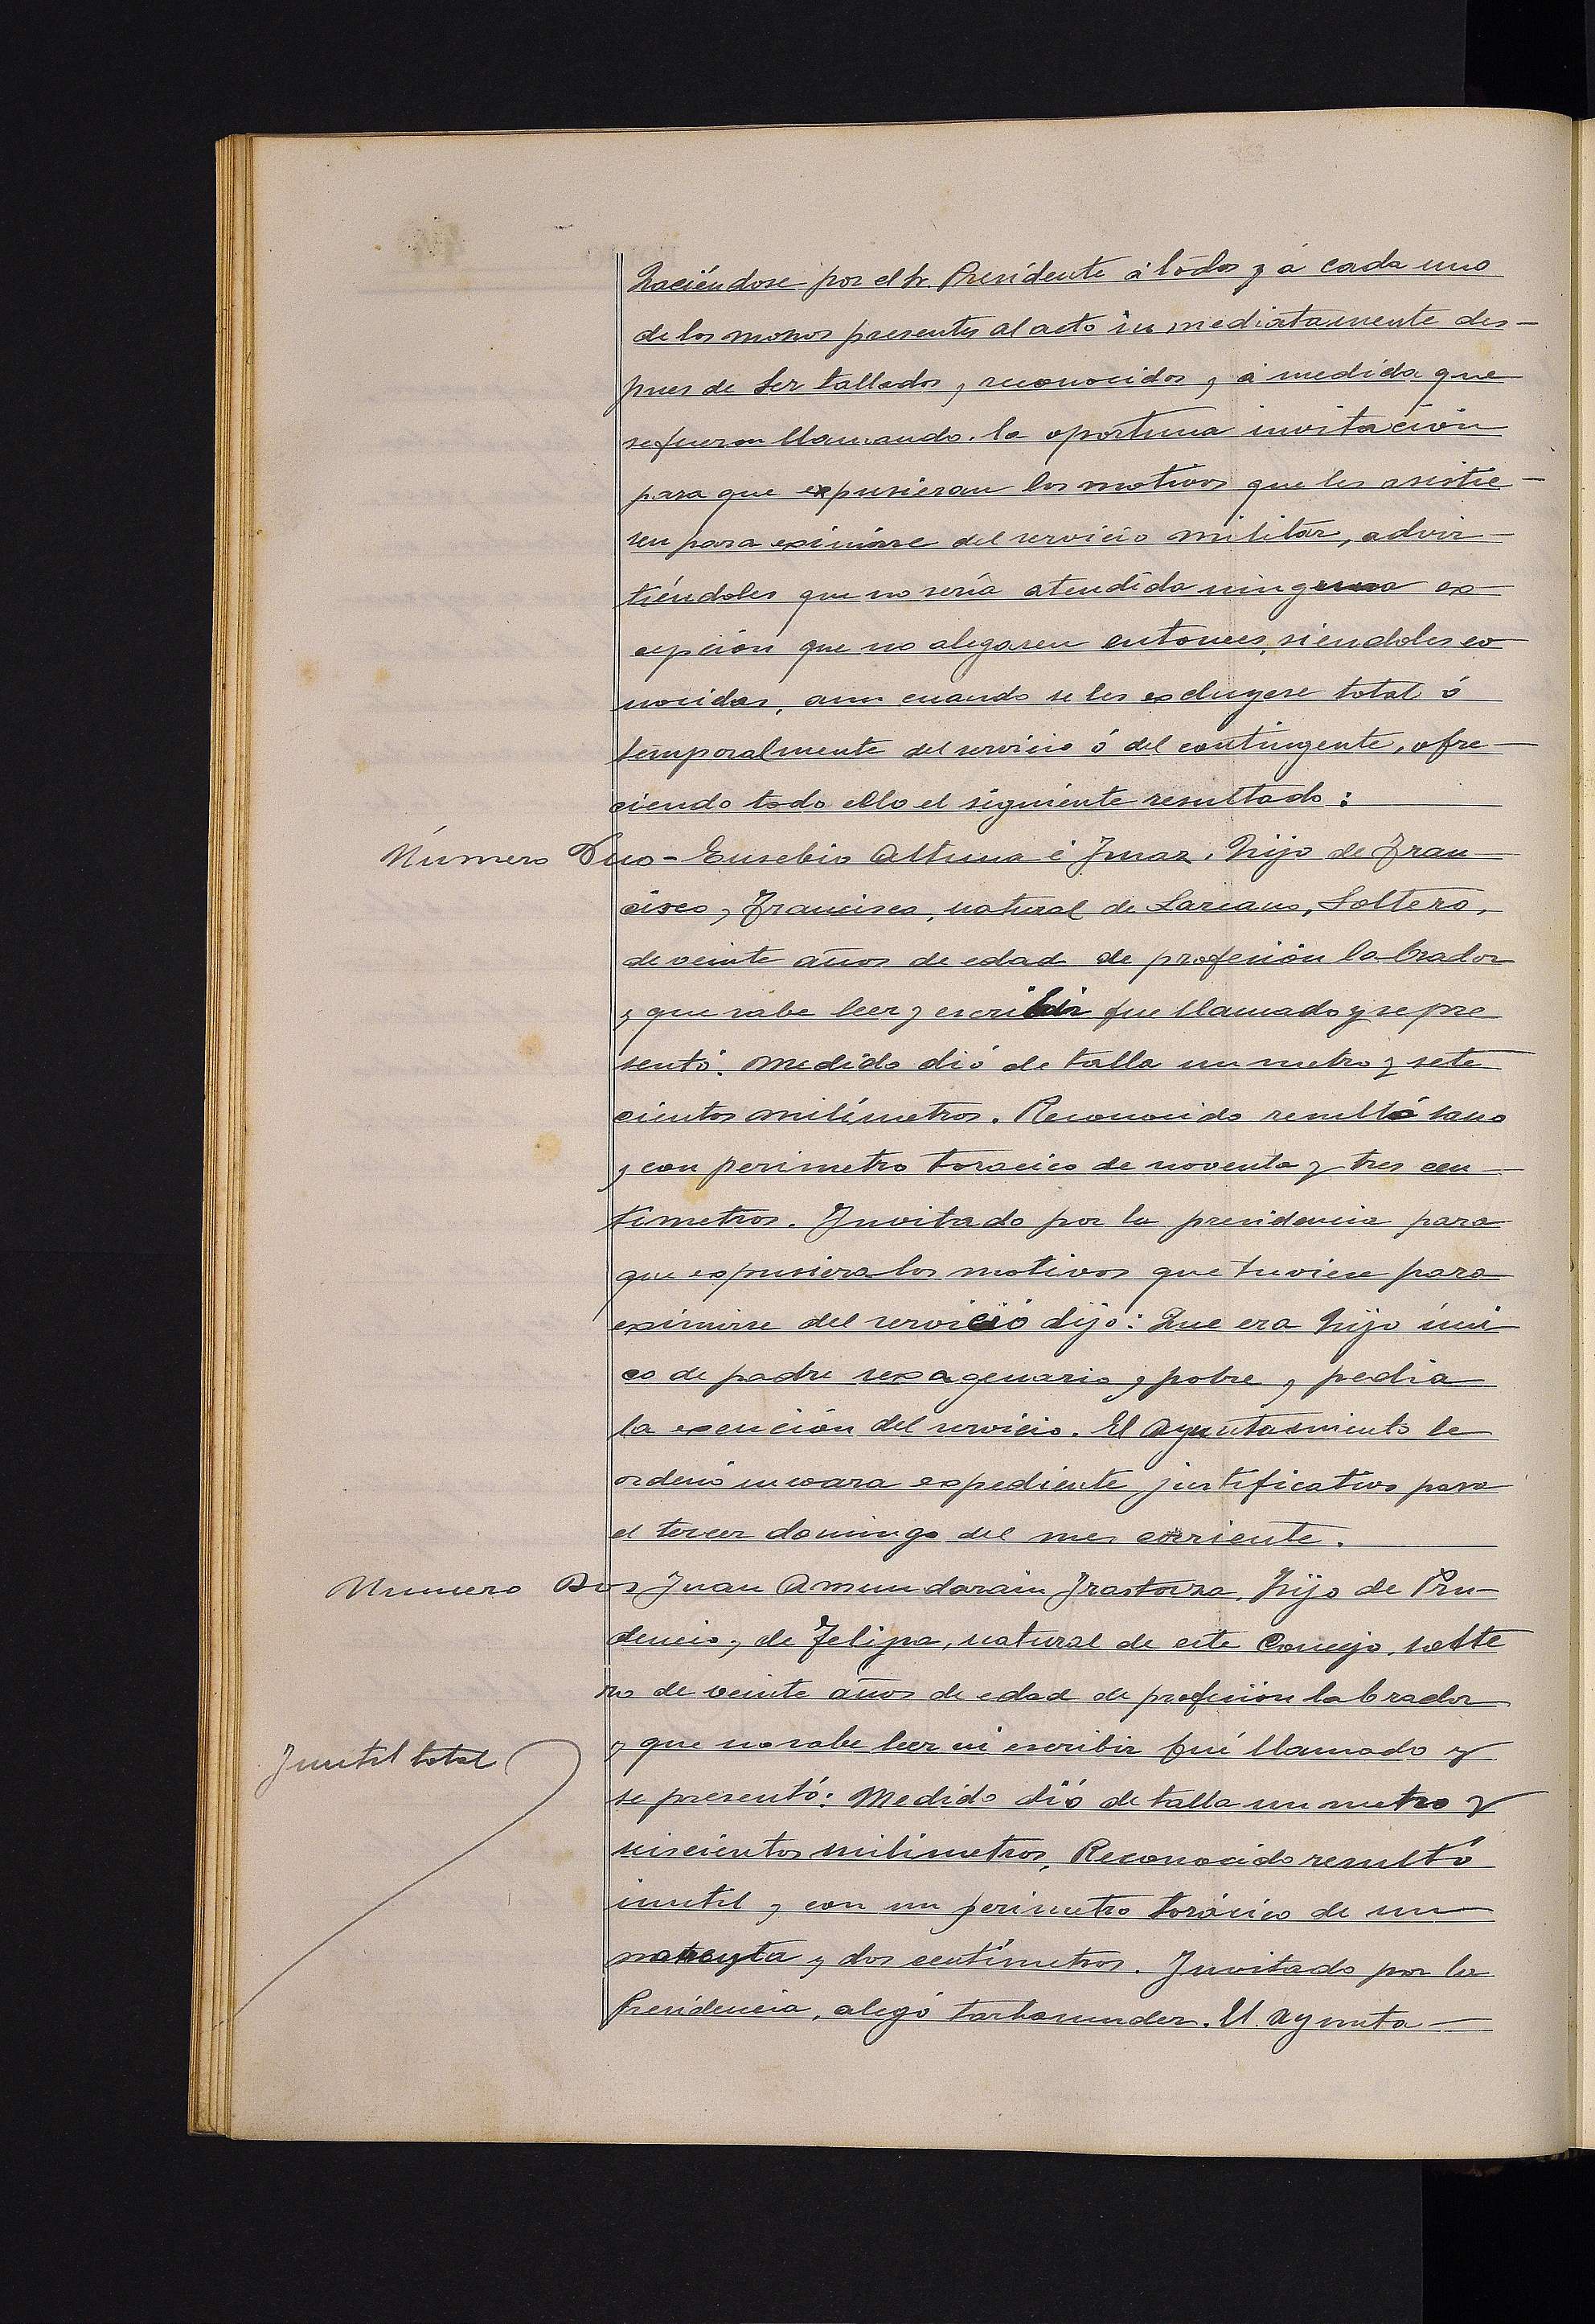 haciéndose por el Sr. Presidente á todos y á cada uno
de los mozos presentes al acto inmediatamente des-
pues de ser tallados y reconocidos y á medida que
se fueron llamando. la oportuna invitación
para que expusieran los motivos que les asistie-
sen para eximirse del servicio militar, advir-
tiéndoles que no sería atendida ninguna ex-
cepción que no alegasen entonces, siendoles co
nocidas, aun cuando se les excluyese total ó
temporalmente del servicio ó del contingente, ofre-
ciendo todo ello el siguiente resultado:
Número Uno - Eusebio Altuna é Imaz. Hijo de Fran-
cisco y Francisca, natural de Lazcano, Soltero,
de veinte años de edad de profesión labrador
y que sabe leer y escribir fue llamado y se pre
sentó. Medido dió de talla un metro y sete
cientos milímetros. Reconocido resultó sano
y con perimetro toracico de noventa y tres cen-
tímetros. Invitado por la presidencia para
que expusiera los motivos que tuviese para
eximirse del servicio dijo: Que era hijo úni
co de padre sexagenario y pobre y pedia
la exención del servicio. El Ayuntamiento le
ordenó incoara expediente justificativo para
el tercer domingo del mes corriente.
Numero Dos Juan Amundarain Irastorza. Hijo de Pru-
dencio y de Felipa, natural de este Concejo, solte
ro de veinte años de edad de profesion labrador
y que no sabe leer ni escribir fué llamado y
Inutil total
se presentó: Medido dió de talla un metro y
seiscientos milimetros. Reconocido resultó
inutil y con un perimetro torácico de
y dos centímetros. Invitado por la
Presidencia, alegó El Ayunta-